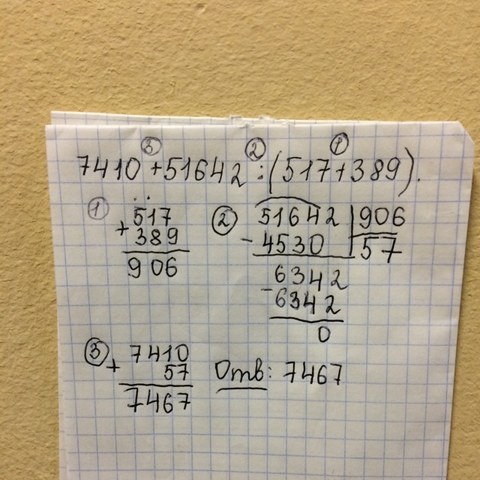 ③ ② ①
7410+51642:(517+389).
① 517
+389
906
② 51642 | 906
-4530 57
6342
-6342
0
③ 7410
+ 57
7467
Отв: 7467